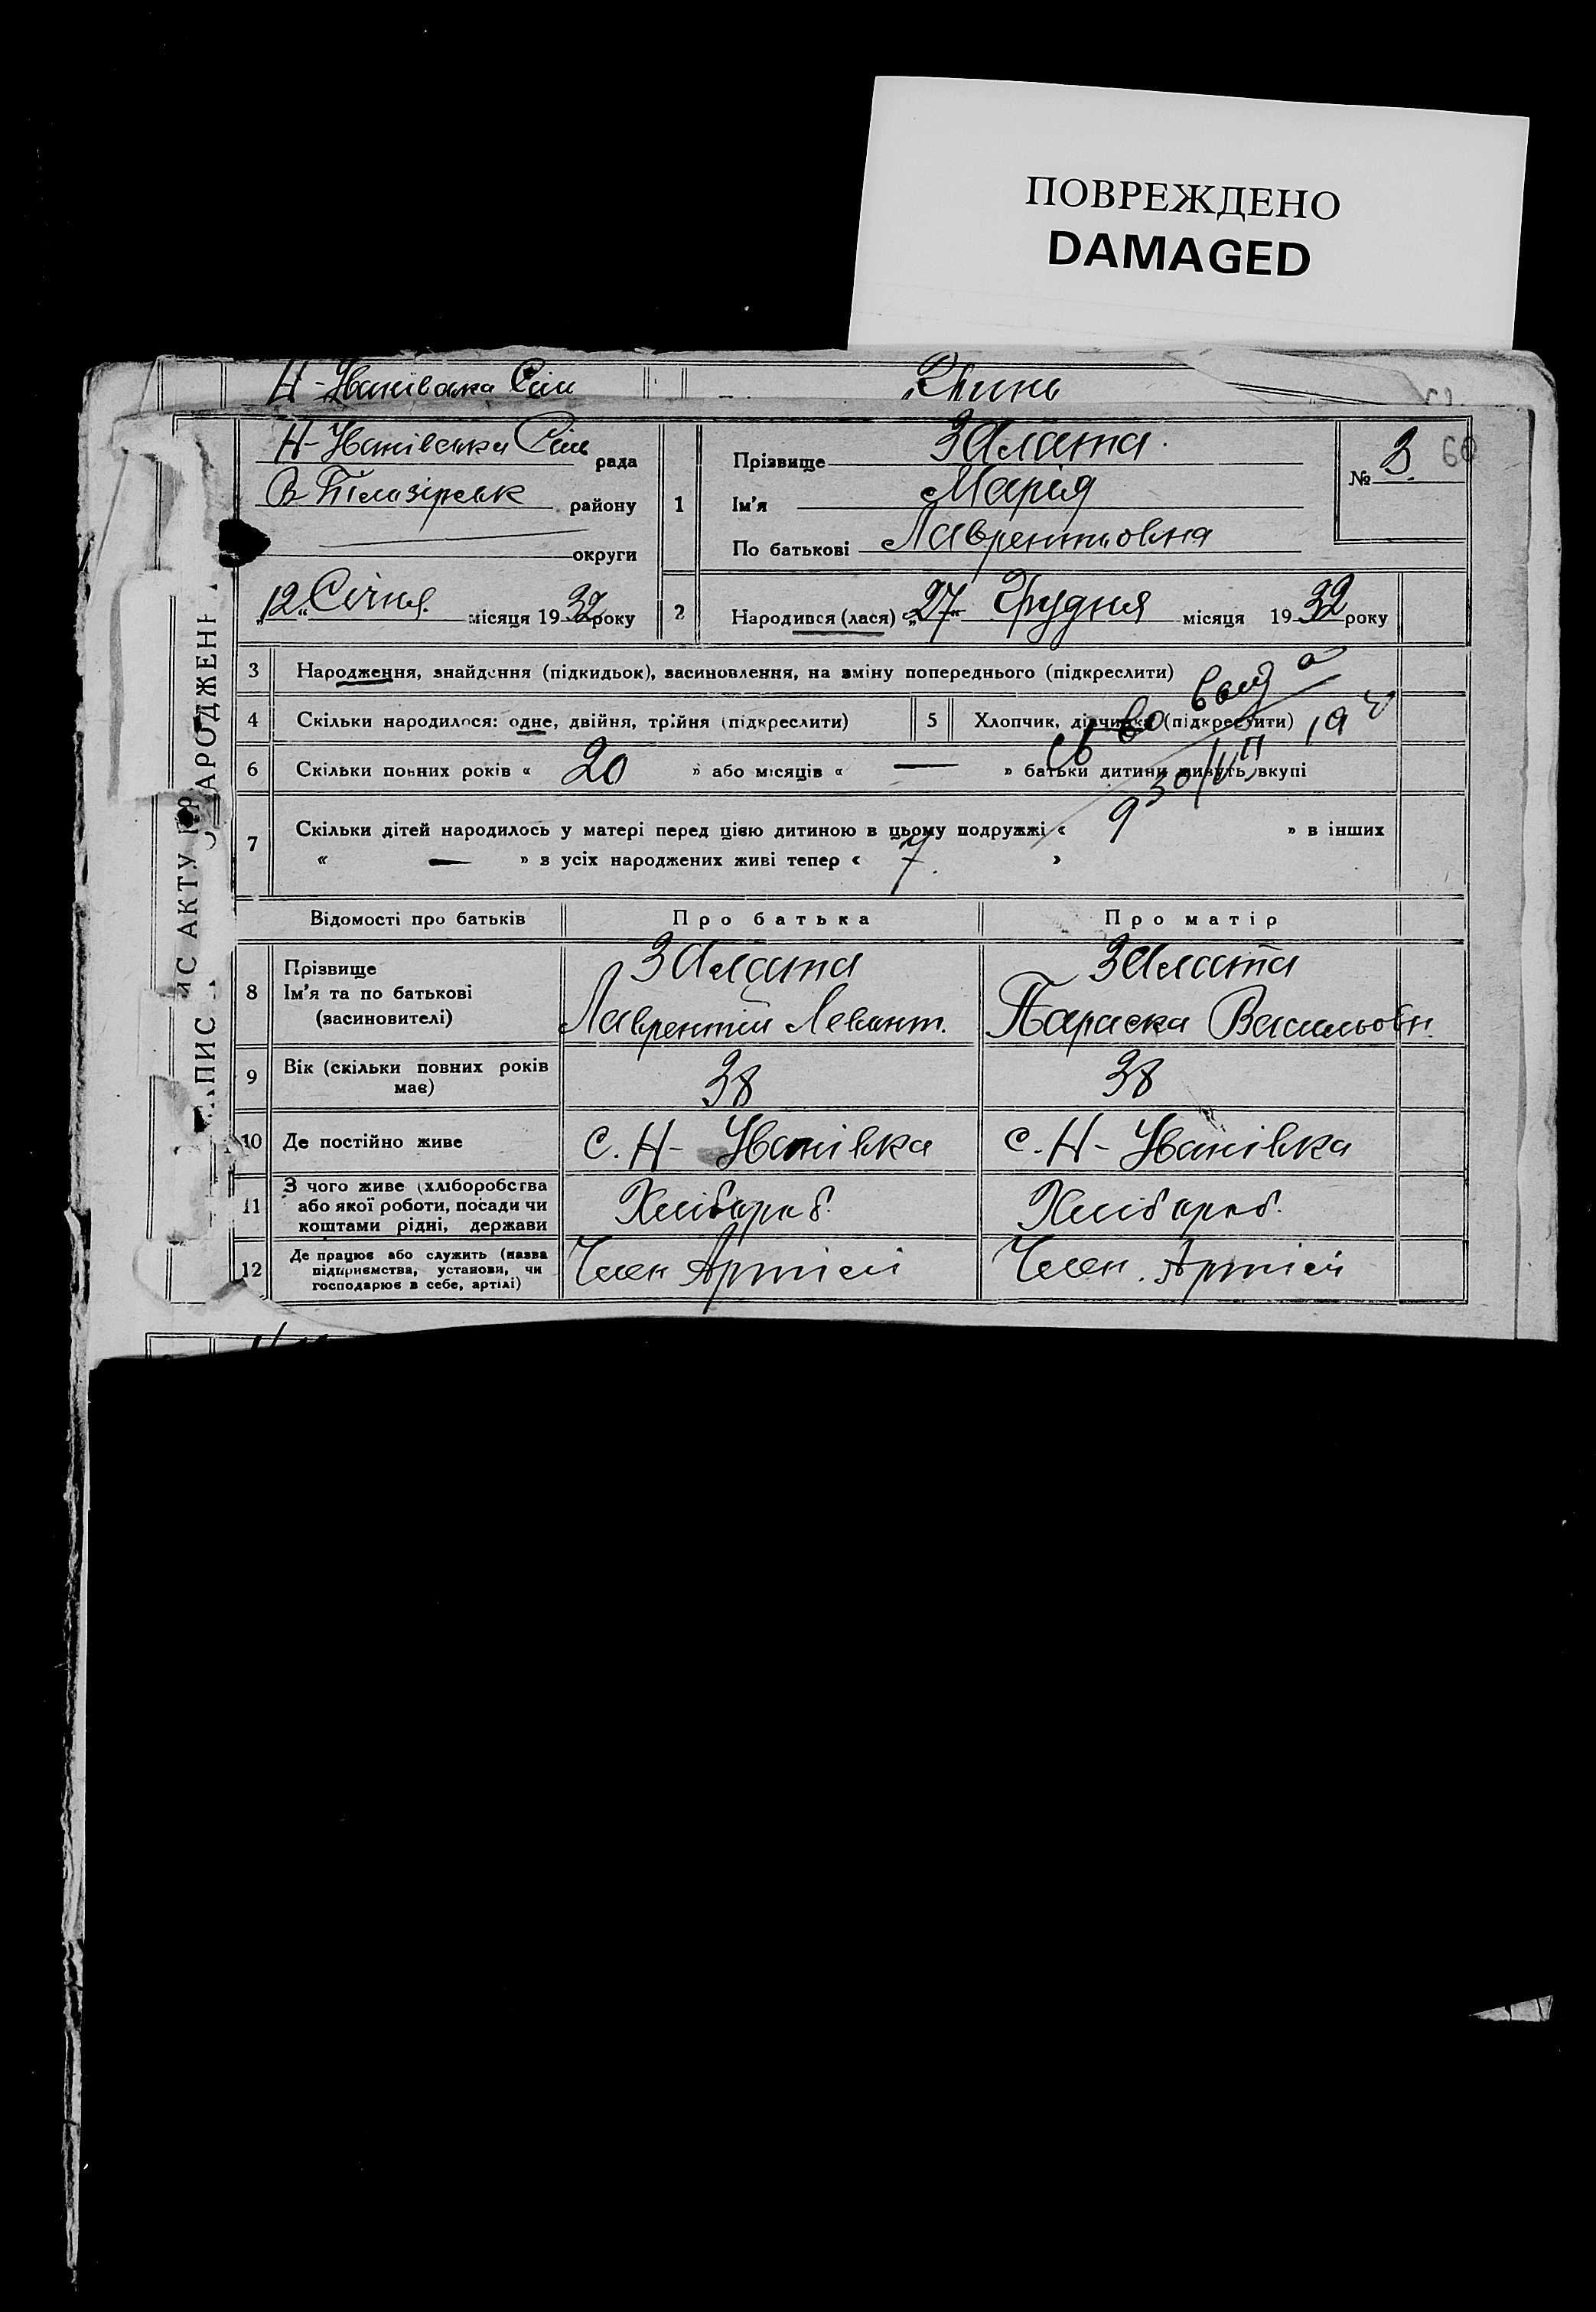 ПОВРЕЖДЕНО
DAMAGED
Н-Іванівська Сіль
Н-Іванівська Сіль рада
району
округи
"12" Січня місяця 1932 року
1
Прізвище Залата
Ім'я Марія
По батькові Лаврентьовна
№ 3
60
2 Народився (лася) "27" Грудня місяця 1932 року
3 Народження, знайдення (підкидьок), засиновлення, на зміну попереднього (підкреслити)
4 Скільки народилося: одне, двійня, трійня (підкреслити) 5 Хлопчик, дівчинка (підкреслити)
Св во выд а
30/VII
6 Скільки повних років « 20 » або місяців « — » батьки дитини живуть вкупі
7 Скільки дітей народилось у матері перед цією дитиною в цьому подружжі « 9 » в інших
« — » в усіх народжених живі тепер « 7 »
Відомості про батьків Про батька Про матір
8 Прізвище
Ім'я та по батькові
(засиновителі)
Залата
Лаврентій Левонт.
Залата
Параска Васильовн.
9 Вік (скільки повних років
має)
38
38
10 Де постійно живе с. Н-Іванівка с. Н-Іванівка
11 З чого живе (хліборобства
або якої роботи, посади чи
коштами рідні, держави
Хлібороб.
Хлібороб.
12 Де працює або служить (назва
підприємства, установи, чи
господарює в себе, артілі)
Член Артілі
Член Артілі